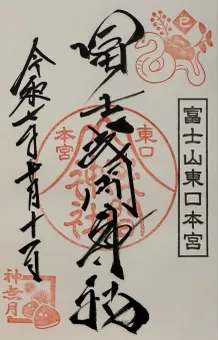 巳
富士山東口本宮
冨士浅間神社
東口
本宮
令和七年十月十一日
神無月